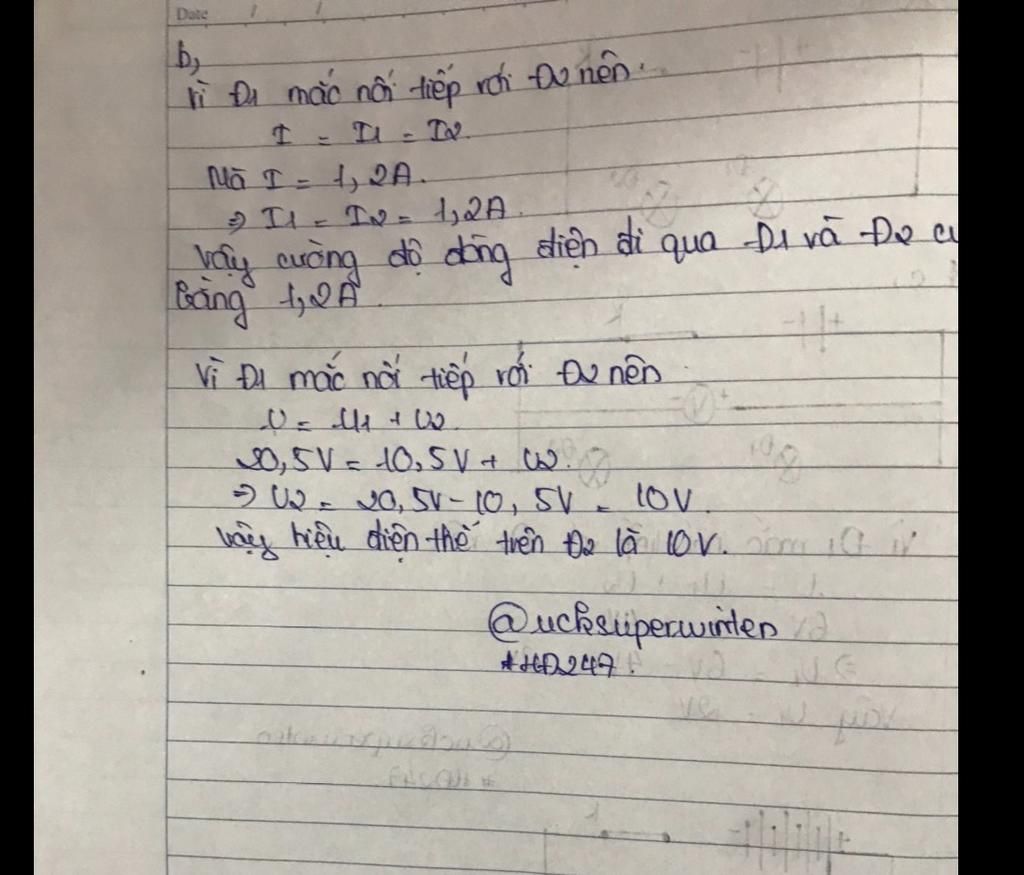 Date / /
b,
Vì Đ1 mắc nối tiếp với Đ2 nên.
I = I1 = I2.
Mà I = 1,2A.
⇒ I1 = I2 = 1,2A.
Vậy cường độ dòng điện đi qua Đ1 và Đ2
Bằng 1,2A.
Vì Đ1 mắc nối tiếp với Đ2 nên
U = U1 + U2
20,5V = 10,5V + U2.
⇒ U2 = 20,5V - 10,5V = 10V.
Vậy hiệu điện thế trên Đ2 là 10V.
@ucksuperwinter
*HD247.